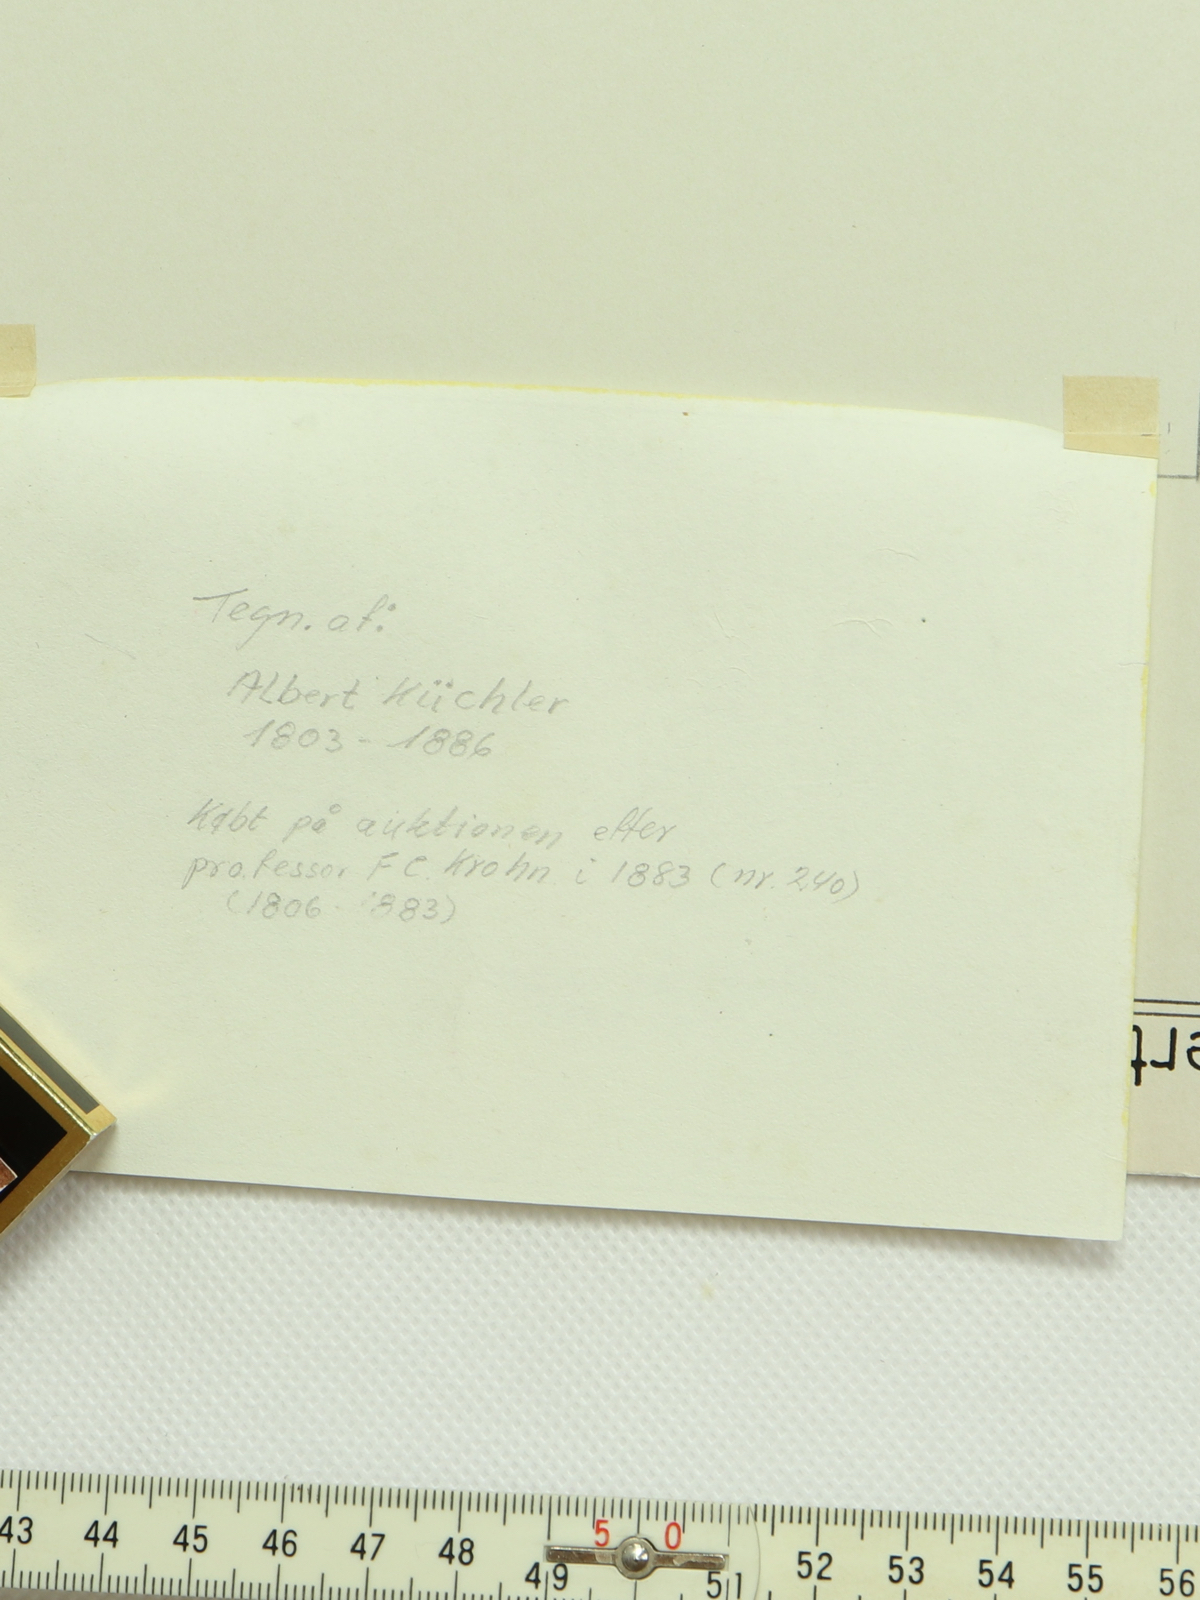 Tegn. af:
Albert Küchler
1803 - 1886
Købt på auktionen efter
professor F C. Krohn i 1883 (nr. 240)
(1806 - 1883)
43 44 45 46 47 48 49 50 51 52 53 54 55 56